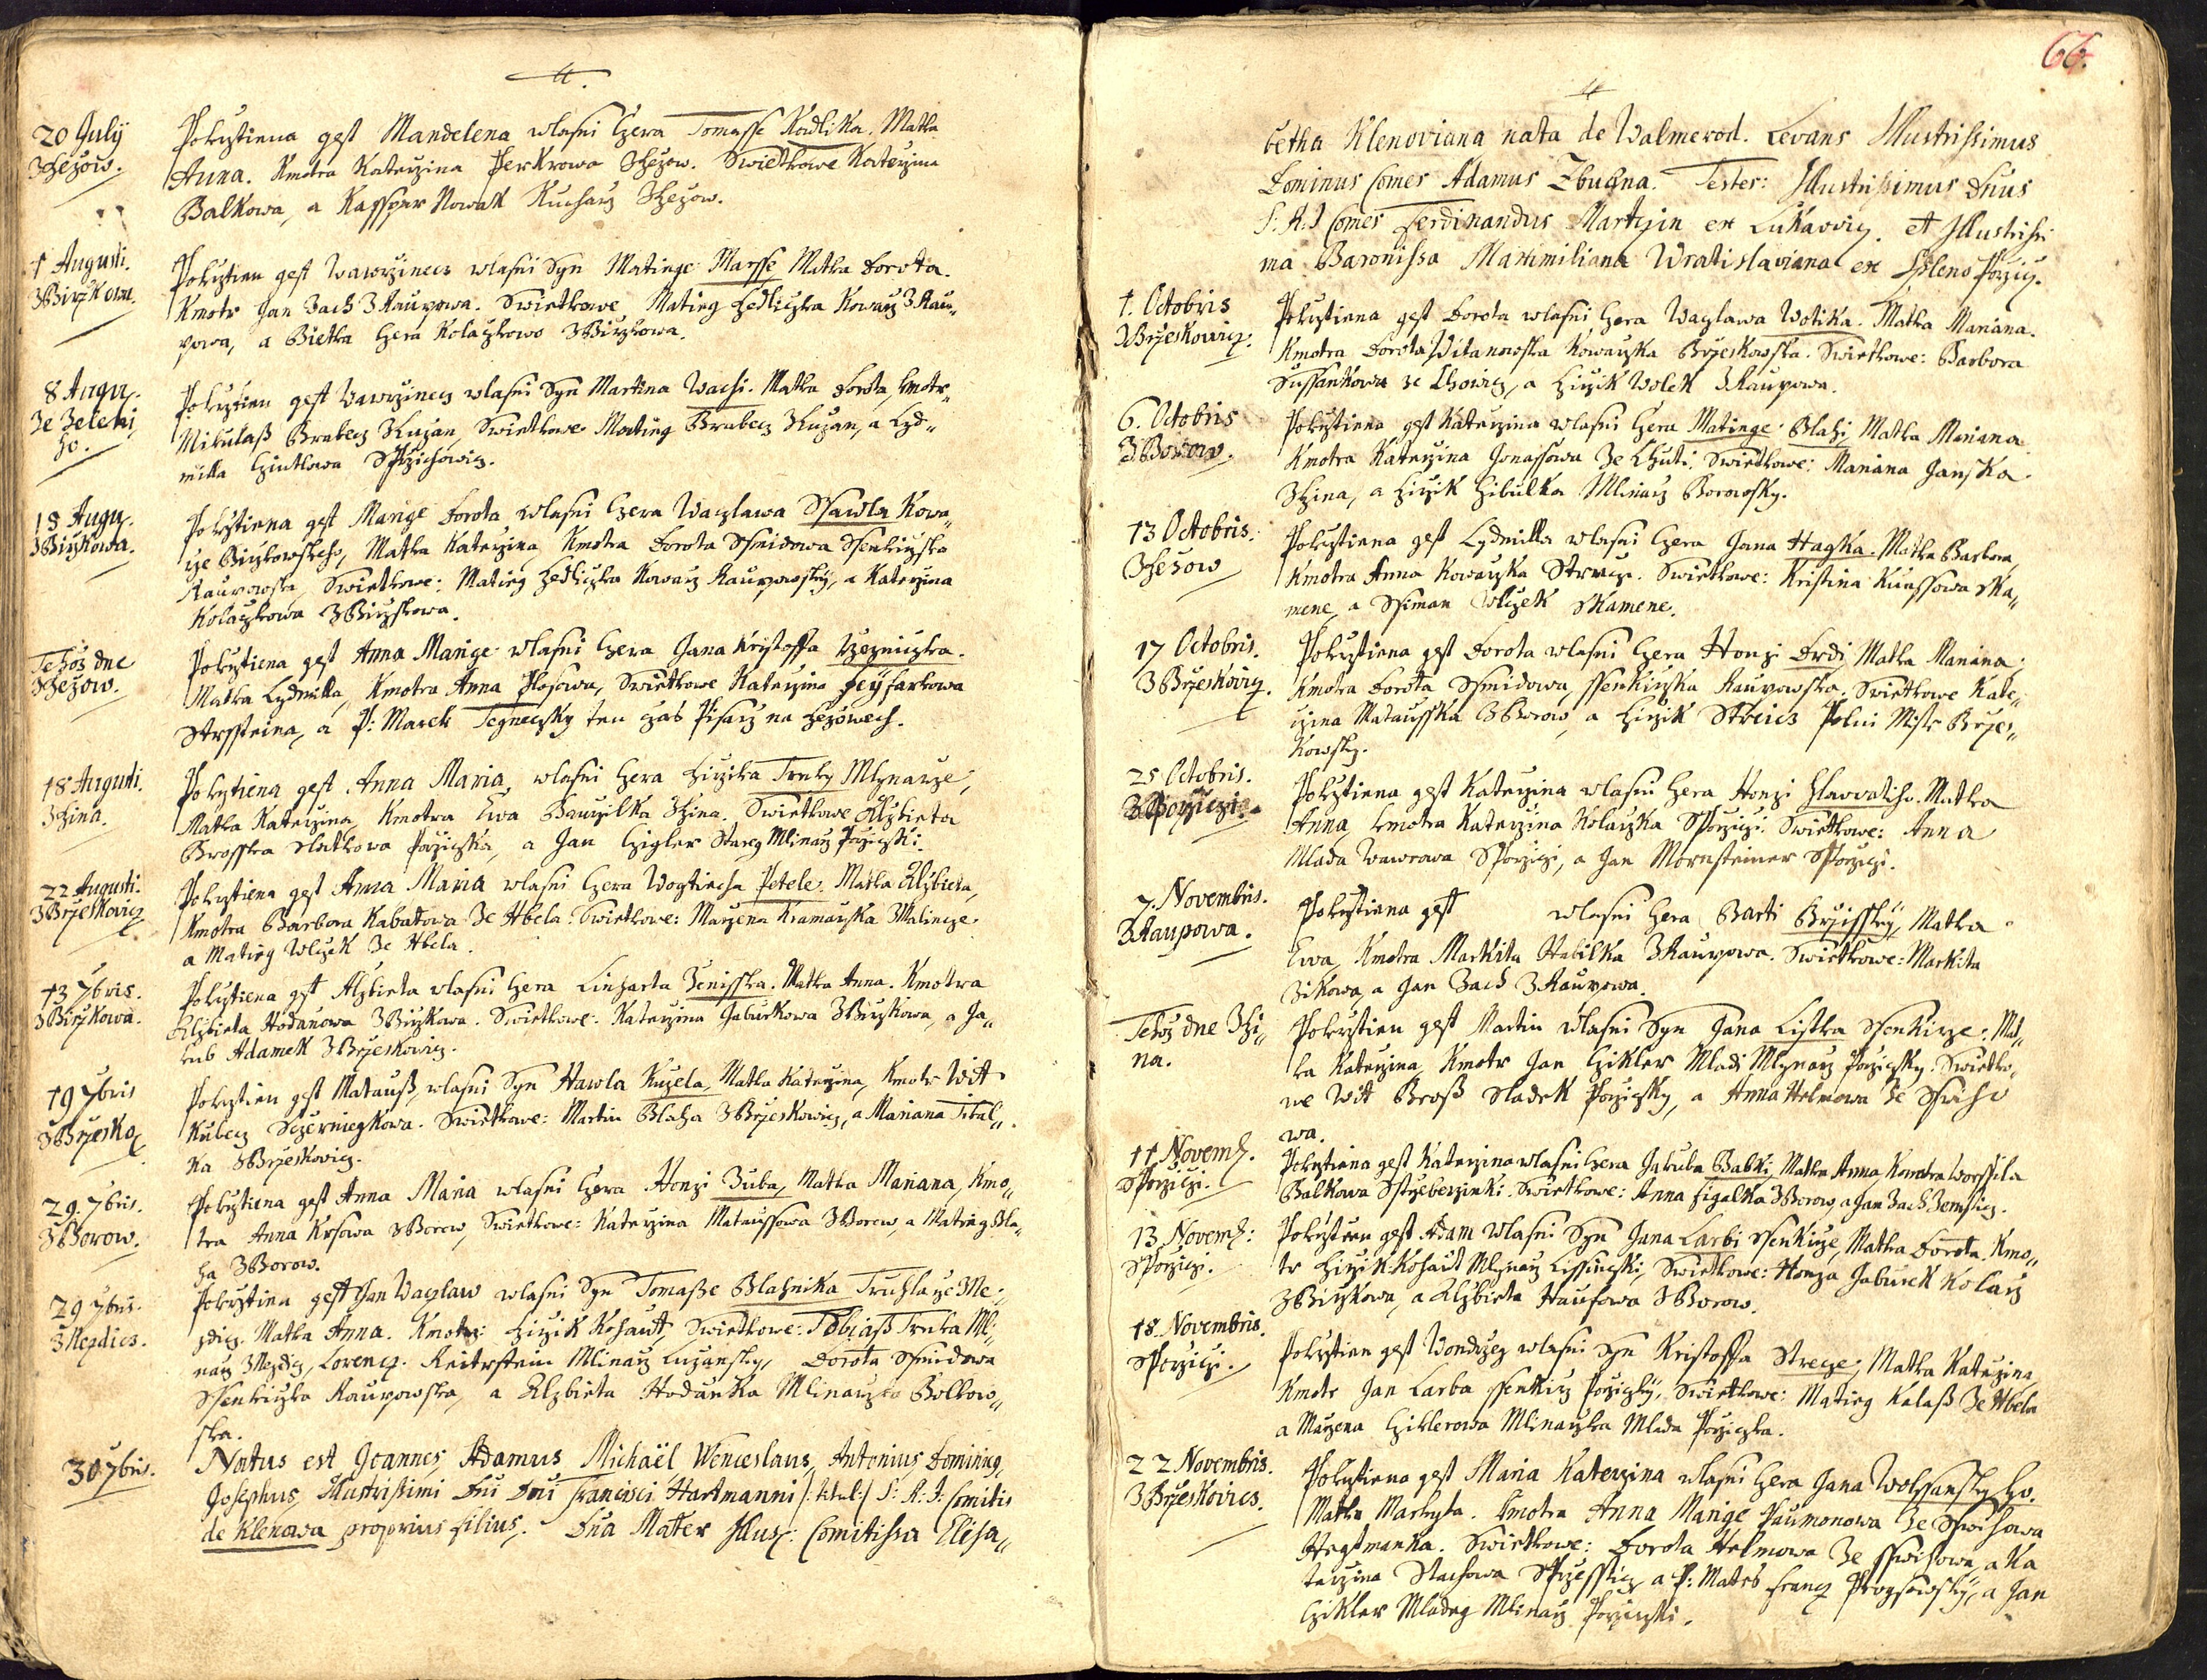 20 July
Z Gezow.
Pokrztiena gest Mandelena wlasni Czera Tomasse Kodlika. Matka
Anna. Kmotra Katerzina Perkrowa Z Gezow. Swietkowe Katerzina
Balkowa, a Kassper Nowak Kucharz Z Gezow.
1 Augusti.
Z Birzkowa.
Pokrztien gest Wawrzinecz wlasni Syn Matiege Marsse, Matka Dorota.
Kmotr Jan Zach Z Raupowa. Swietkowe Matieg Hedliczka Kowarz Z Rau„
powa, a Bietka Czera Kolaczkowo Z Birzkowa.
8 Augu.
Ze Zeleni
ho.
Pokrztien gest Wawrzinecz wlasni Syn Martina Wachi. Matka Dorota, kmotr„
Nikulaß Brabecz Z Luzan, Swietkowe Matieg Brabecz Z Luzan, a Lyd„
milla
18 Augu.
Z Birzkowa.
Pokrztiena gest Marige Dorota wlasni Czera Waczlawa Ssawla Kowa„
rze Birzkowskeho, Matka Katerzina, Kmotra Dorota Ssmidowa Ssenkirzka
Raupowska, Swietkowe: Matieg Hedliczka Kowarz Raupowsky, a Katerzina
Kolaczkowa Z Birzkowa.
Tehoz dne
Z Gezow.
Pokrztiena gest Anna Marige wlasni Czera Jana Kristoffa Rzezniczka.
Matka Lydmilla, Kmotra Anna Plosowa, Swietkowe Katerzina Feyfarkowa
a P: Marek Tegneczky ten czas Pisarz na Gezowech.
18 Augusti.
Z Zina.
Pokrztiena gest Anna Maria, wlasni Czera Girzika Trnky Mlynarze,
Matka Katerzina, Kmotra Ewa Z Zina. Swietkowe Alzbieta
Brosska Slatkowa Porziczka, a Jan Czigler Stareg Mlinarz Porziczki.
22 Augusti.
Z Brzeskowicz
Pokrztiena gest Anna Maria wlasni Czera Wogtiecha Petele. Matka Alzbieta,
Kmotra Barbora Kabatowa Ze Hbela. Swietkowe: Marzena Kramarzka Z Malincze.
a Matieg Wlczek Ze Hbela.
13 7bris.
Z Birzkowa.
Pokrztiena gest Alzbieta wlasni Czera Linharta Zenisska. Matka Anna. Kmotra
Alzbieta Hodanowa Z Birzkowa. Swietkowe: Katerzina Jaburkowa Z Birzkowa, a Ja„
kub Adamek Z Brzeskowicz.
19 7bris
Z Brzesko
Pokrztien gest Matauß, wlasni Syn Hawla Kuzela, Matka Katerzina, Kmotr Wit
Kubecz Sczerniegkowa. Swietkowe: Martin Blaha Z Brzeskowicz, a Mariana Tital„
ka Z Brzeskowicz.
29. 7bris.
Z Borow.
Pokrztiena gest Anna Maria wlasni Czera Honzi Zuba, Matka Mariana, Kmo„
tra Anna Krsowa Z Borow, Swietkowe: Katerzina Mataussowa Z Borow, a Matieg Bla„
ha Z Borow.
29 7bris.
Z Mezdics.
Pokrztien gest Jan Waczlaw wlasni Syn Tomaße Blaznika Truhlarze Z Me„
zdicz. Matka Anna. Kmotrzi Girzik Kohaut, Swietkowe: Tobiaß Trnka Ml„
narz Z Mezdicz, Lorencz Reitrstein Mlinarz Luzansky, Dorota Ssmidowa
Ssenkirzka Raupowska, a Alzbieta Hodanka Mlinarzka Bolkow„
ska.
30 7bris.
Natus est Joannes Adamus Michaël Wenceslaus, Antonius Dominicq,
Josephus, Illustrissimi Dni Dni Francisci Hartmanni /:titul:/ S: R: I: Comitis
de Klenowa proprius filius. Dna Mater Illus: Comitissa Elisa„
66.
betha Klenoviana nata de Walmerod. Levans Illustrissimus
Dominus Comes Adamus Zbudna. Testes: Illustrissimus Dnus
S: R: I Comes Ferdinandus Martzin ex Lukawicz. et Illustrissi
ma Baronissa Maximiliana Wratislaviana ex Porzicz.
1. Octobris
Z Brzeskowicz.
Pokrztiena gest Dorota wlasni Czera Waczlawa Wotika. Matka Mariana.
Kmotra Dorota Witanowska Kowarzka Brzeskowska. Swietkowe: Barbora
Sussankowa ze Lhowicz, a Girzik Wolek Z Raupowa.
6. Octobris
Z Borow.
Pokrztiena gest Katerzina wlasni Czera Matiege Blahi, Matka Mariana
Kmotra Katerzina Jonassowa Ze Lhuti. Swietkowe: Mariana Janska
Z Zina, a Girzik Zibulka Mlinarz Borowsky.
13 Octobris.
Z Gezow
Pokrztiena gest Lydmilla wlasni Czera Jana Hagka. Matka Barbora,
Kmotra Anna Kowarzka. Swietkowe: Kristina Kubssowa SKa„
mene, a Ssiman Wlczek SKamene.
17 Octobris.
Z Brzeskowicz.
Pokrztiena gest Dorota wlasni Czera Honzi Drdi, Matka Mariana.
Kmotra Dorota Ssmidowa, ssenkirzka Raupowska. Swietkowe Kate„
rzina Matausska Z Borow, a Girzik Streics Polni Mistr Brzes„
kowsky.
25 Octobris.
Z Porziczi.
Pokrztiena gest Katerzina wlasni Czera Honzi Hlawatiho. Matka
Anna, kmotra Katerzina Kolarzka S Porziczi. Swietkowe: Anna
Mlada Wawrowa S Porziczi, a Jan Mornsteiner S Porziczi.
7. Novembris.
Z Raupowa.
Pokrztiena gest wlasni Czera Barti Brzissky, Matka
Ewa, Kmotra Markita Habilka Z Raupowa. Swietkowe: Markita
Zikowa, a Jan Zach Z Raupowa.
Tehoz dne Z Zi„
na.
Pokrztien gest Martin wlasni Syn Jana Listka Ssenkirze: Mat„
ka Katerzina, Kmotr Jan Czikler Mladi Mlynarz Porziczky. Swietko„
we Wit Broß Sladek Porziczky, a Anna Helmowa Ze Sswiho
wa.
11 Novemb.
S Porziczi.
Pokrztiena gest Katerzina wlasni Czera Jakuba Babki, Matka Anna, Kmotra Worssila
Balkowa. Swietkowe: Anna Figalka Z Borow, a Jan Zach Zemsicz.
13 Novemb:
S Porziczi.
Pokrztien gest Adam wlasni Syn Jana Larbi Ssenkirze, Matka Dorota. Kmo„
tr Girzik Kohaut Mlynarz. Swietkowe: Honza Jaburek Kolarz
Z Birzkowa, a Alzbieta Hausowa Z Borow.
18. Novembris.
S Porziczi.
Pokrztien gest Wondrzeg wlasni Syn Kristoffa Strecze, Matka Katerzina
Kmotr Jan Larba ssenkirz Porziczky, Swietkowe: Matieg Kalaß Ze Hbela
a Marzena Cziklerowa Mlinarzka Mlada Porziczka.
22 Novembris.
Z Brzeskovics.
Pokrztiena gest Maria Katerzina wlasni Czera Jana Wolssanskyho.
Matka Markyta. Kmotra Anna Marige Paumonowa Ze Sswihowa
Hegtmanka. Swietkowe: Dorota Helmowa Ze Sswihowa, a Ka
terzina Stachowa S Przesstiez, a P: Mates Francz, a Jan
Czikler Mladeg Mlinarz Porziczki.